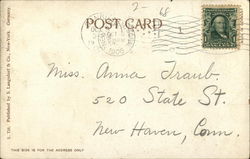 2- 68
POST CARD
1906
Miss. Anna Traub.
520 State St.
New Haven, Conn.
THIS SIDE IS FOR THE ADDRESS ONLY
L. 751. Published by S. Langsdorf & Co., New-York. Germany.